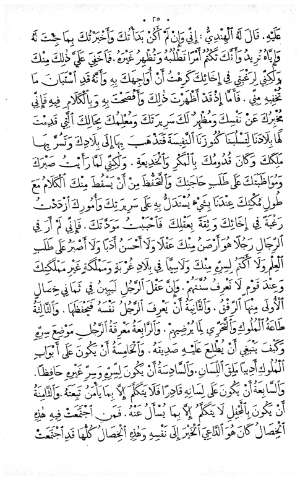 ٢٥
عَلَيْهِ. قَالَ لَهُ الْهِنْدِيُّ: إِنِّي وَإِنْ لَمْ أَكُنْ بَدَأْتُكَ وَأَخْبَرْتُكَ بِمَا جِئْتَ لَهُ
وَإِيَّاهُ تُرِيدُ وَأَنَّكَ تَكْتُمُ أَمْرًا تَطْلُبُهُ وَتُظْهِرُ غَيْرَهُ. فَمَا خَفِيَ عَلَيَّ ذَلِكَ مِنْكَ
وَلَكِنِّي لِرَغْبَتِي فِي إِخَائِكَ كَرِهْتُ أَنْ أُوَاجِهَكَ بِهِ وَأَنَّهُ قَدِ اسْتَبَانَ مَا
تُخْفِيهِ مِنِّي. فَأَمَّا إِذْ قَدْ أَظْهَرْتَ ذَلِكَ وَأَفْصَحْتَ بِهِ وَبِالْكَلَامِ فِيهِ فَإِنِّي
مُخْبِرُكَ عَنْ نَفْسِكَ وَمُظْهِرٌ لَكَ سَرِيرَتَكَ وَمُعْلِمُكَ بِحَالِكَ الَّتِي قَدِمْتَ
لَهَا بِلَادَنَا لِتَسْلُبَنَا كُنُوزَنَا النَّفِيسَةَ فَتَذْهَبَ بِهَا إِلَى بِلَادِكَ وَتَسُرَّ بِهَا
مَلِكَكَ وَكَانَ قُدُومُكَ بِالْمَكْرِ وَالْخَدِيعَةِ. وَلَكِنِّي لَمَّا رَأَيْتُ صَبْرَكَ
وَمُوَاظَبَتَكَ عَلَى طَلَبِ حَاجَتِكَ وَالتَّحَفُّظَ مِنْ أَنْ يَسْقُطَ مِنْكَ الْكَلَامُ مَعَ
طُولِ مُكْثِكَ عِنْدَنَا بِشَيْءٍ يُسْتَدَلُّ بِهِ عَلَى سَرِيرَتِكَ وَأُمُورِكَ ازْدَدْتُ
رَغْبَةً فِي إِخَائِكَ وَثِقَةً بِعَقْلِكَ فَأَحْبَبْتُ مَوَدَّتَكَ. فَإِنِّي لَمْ أَرَ فِي
الرِّجَالِ رَجُلًا هُوَ أَرْصَنُ مِنْكَ عَقْلًا وَلَا أَحْسَنُ أَدَبًا وَلَا أَصْبَرُ عَلَى طَلَبِ
الْعِلْمِ وَلَا أَكْتَمُ لِسِرِّهِ مِنْكَ وَلَاسِيَّمَا فِي بِلَادِ غُرْبَةٍ وَمَمْلَكَةٍ غَيْرِ مَمْلَكَتِكَ
وَعِنْدَ قَوْمٍ لَا تَعْرِفُ سُنَّتَهُمْ. وَإِنَّ عَقْلَ الرَّجُلِ لَيَبِينُ فِي ثَمَانِي خِصَالٍ
الْأُولَى مِنْهَا الرِّفْقُ. وَالثَّانِيَةُ أَنْ يَعْرِفَ الرَّجُلُ نَفْسَهُ فَيَحْفَظَهَا. وَالثَّالِثَةُ
طَاعَةُ الْمُلُوكِ وَالتَّحَرِّي لِمَا يُرْضِيهِمْ. وَالرَّابِعَةُ مَعْرِفَةُ الرَّجُلِ مَوْضِعَ سِرِّهِ
وَكَيْفَ يَنْبَغِي أَنْ يُطْلِعَ عَلَيْهِ صَدِيقَهُ. وَالْخَامِسَةُ أَنْ يَكُونَ عَلَى أَبْوَابِ
الْمُلُوكِ أَدِيبًا مَلِقَ اللِّسَانِ. وَالسَّادِسَةُ أَنْ يَكُونَ لِسِرِّهِ وَسِرِّ غَيْرِهِ حَافِظًا.
وَالسَّابِعَةُ أَنْ يَكُونَ عَلَى لِسَانِهِ قَادِرًا فَلَا يَتَكَلَّمُ إِلَّا بِمَا يَأْمَنُ تَبِعَتَهُ. وَالثَّامِنَةُ
أَنْ يَكُونَ بِالْمَحْفِلِ لَا يَتَكَلَّمُ إِلَّا بِمَا يُسْأَلُ عَنْهُ. فَمَنِ اجْتَمَعَتْ فِيهِ هَذِهِ
الْخِصَالُ كَانَ هُوَ الدَّاعِيَ الْخَيْرَ إِلَى نَفْسِهِ وَهَذِهِ الْخِصَالُ كُلُّهَا قَدِ اجْتَمَعَتْ